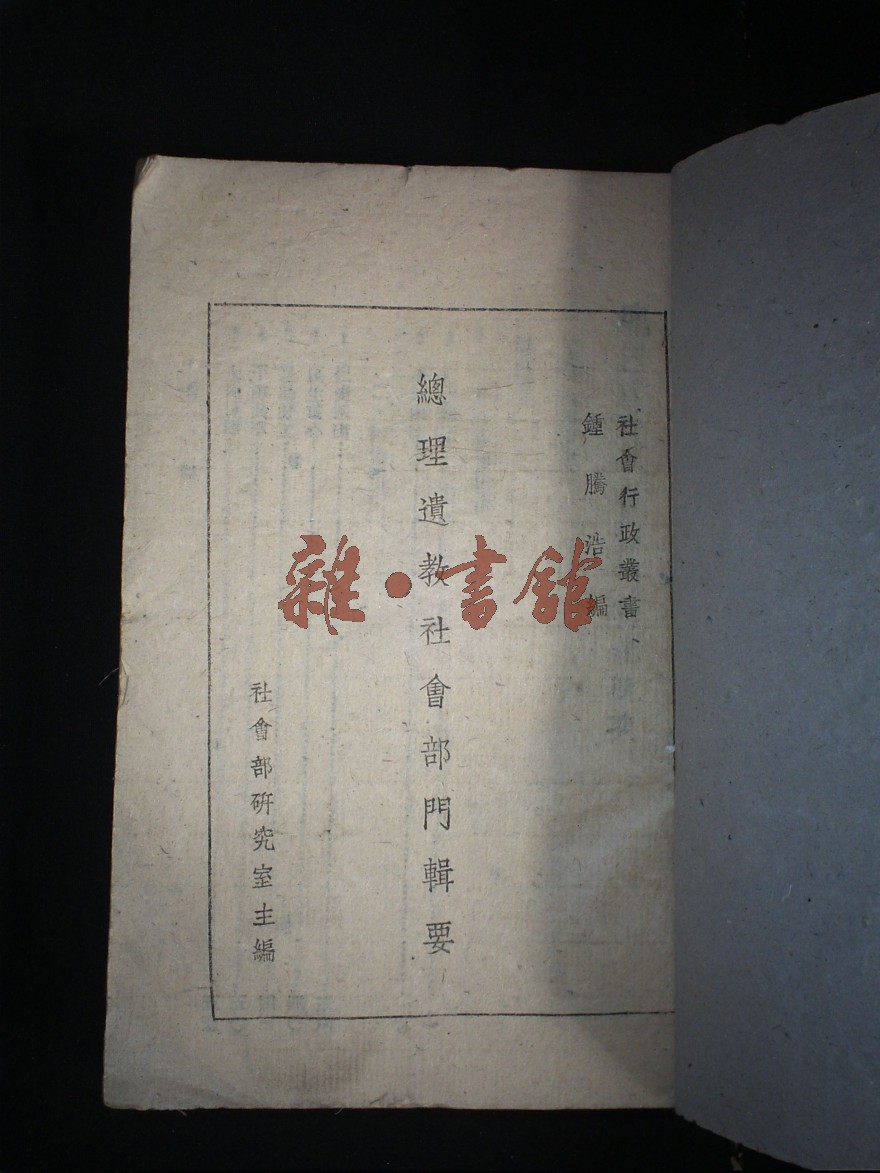 社會行政叢書
鍾騰浩編
總理遺教社會部門輯要
社會部研究室主編
雜·書館